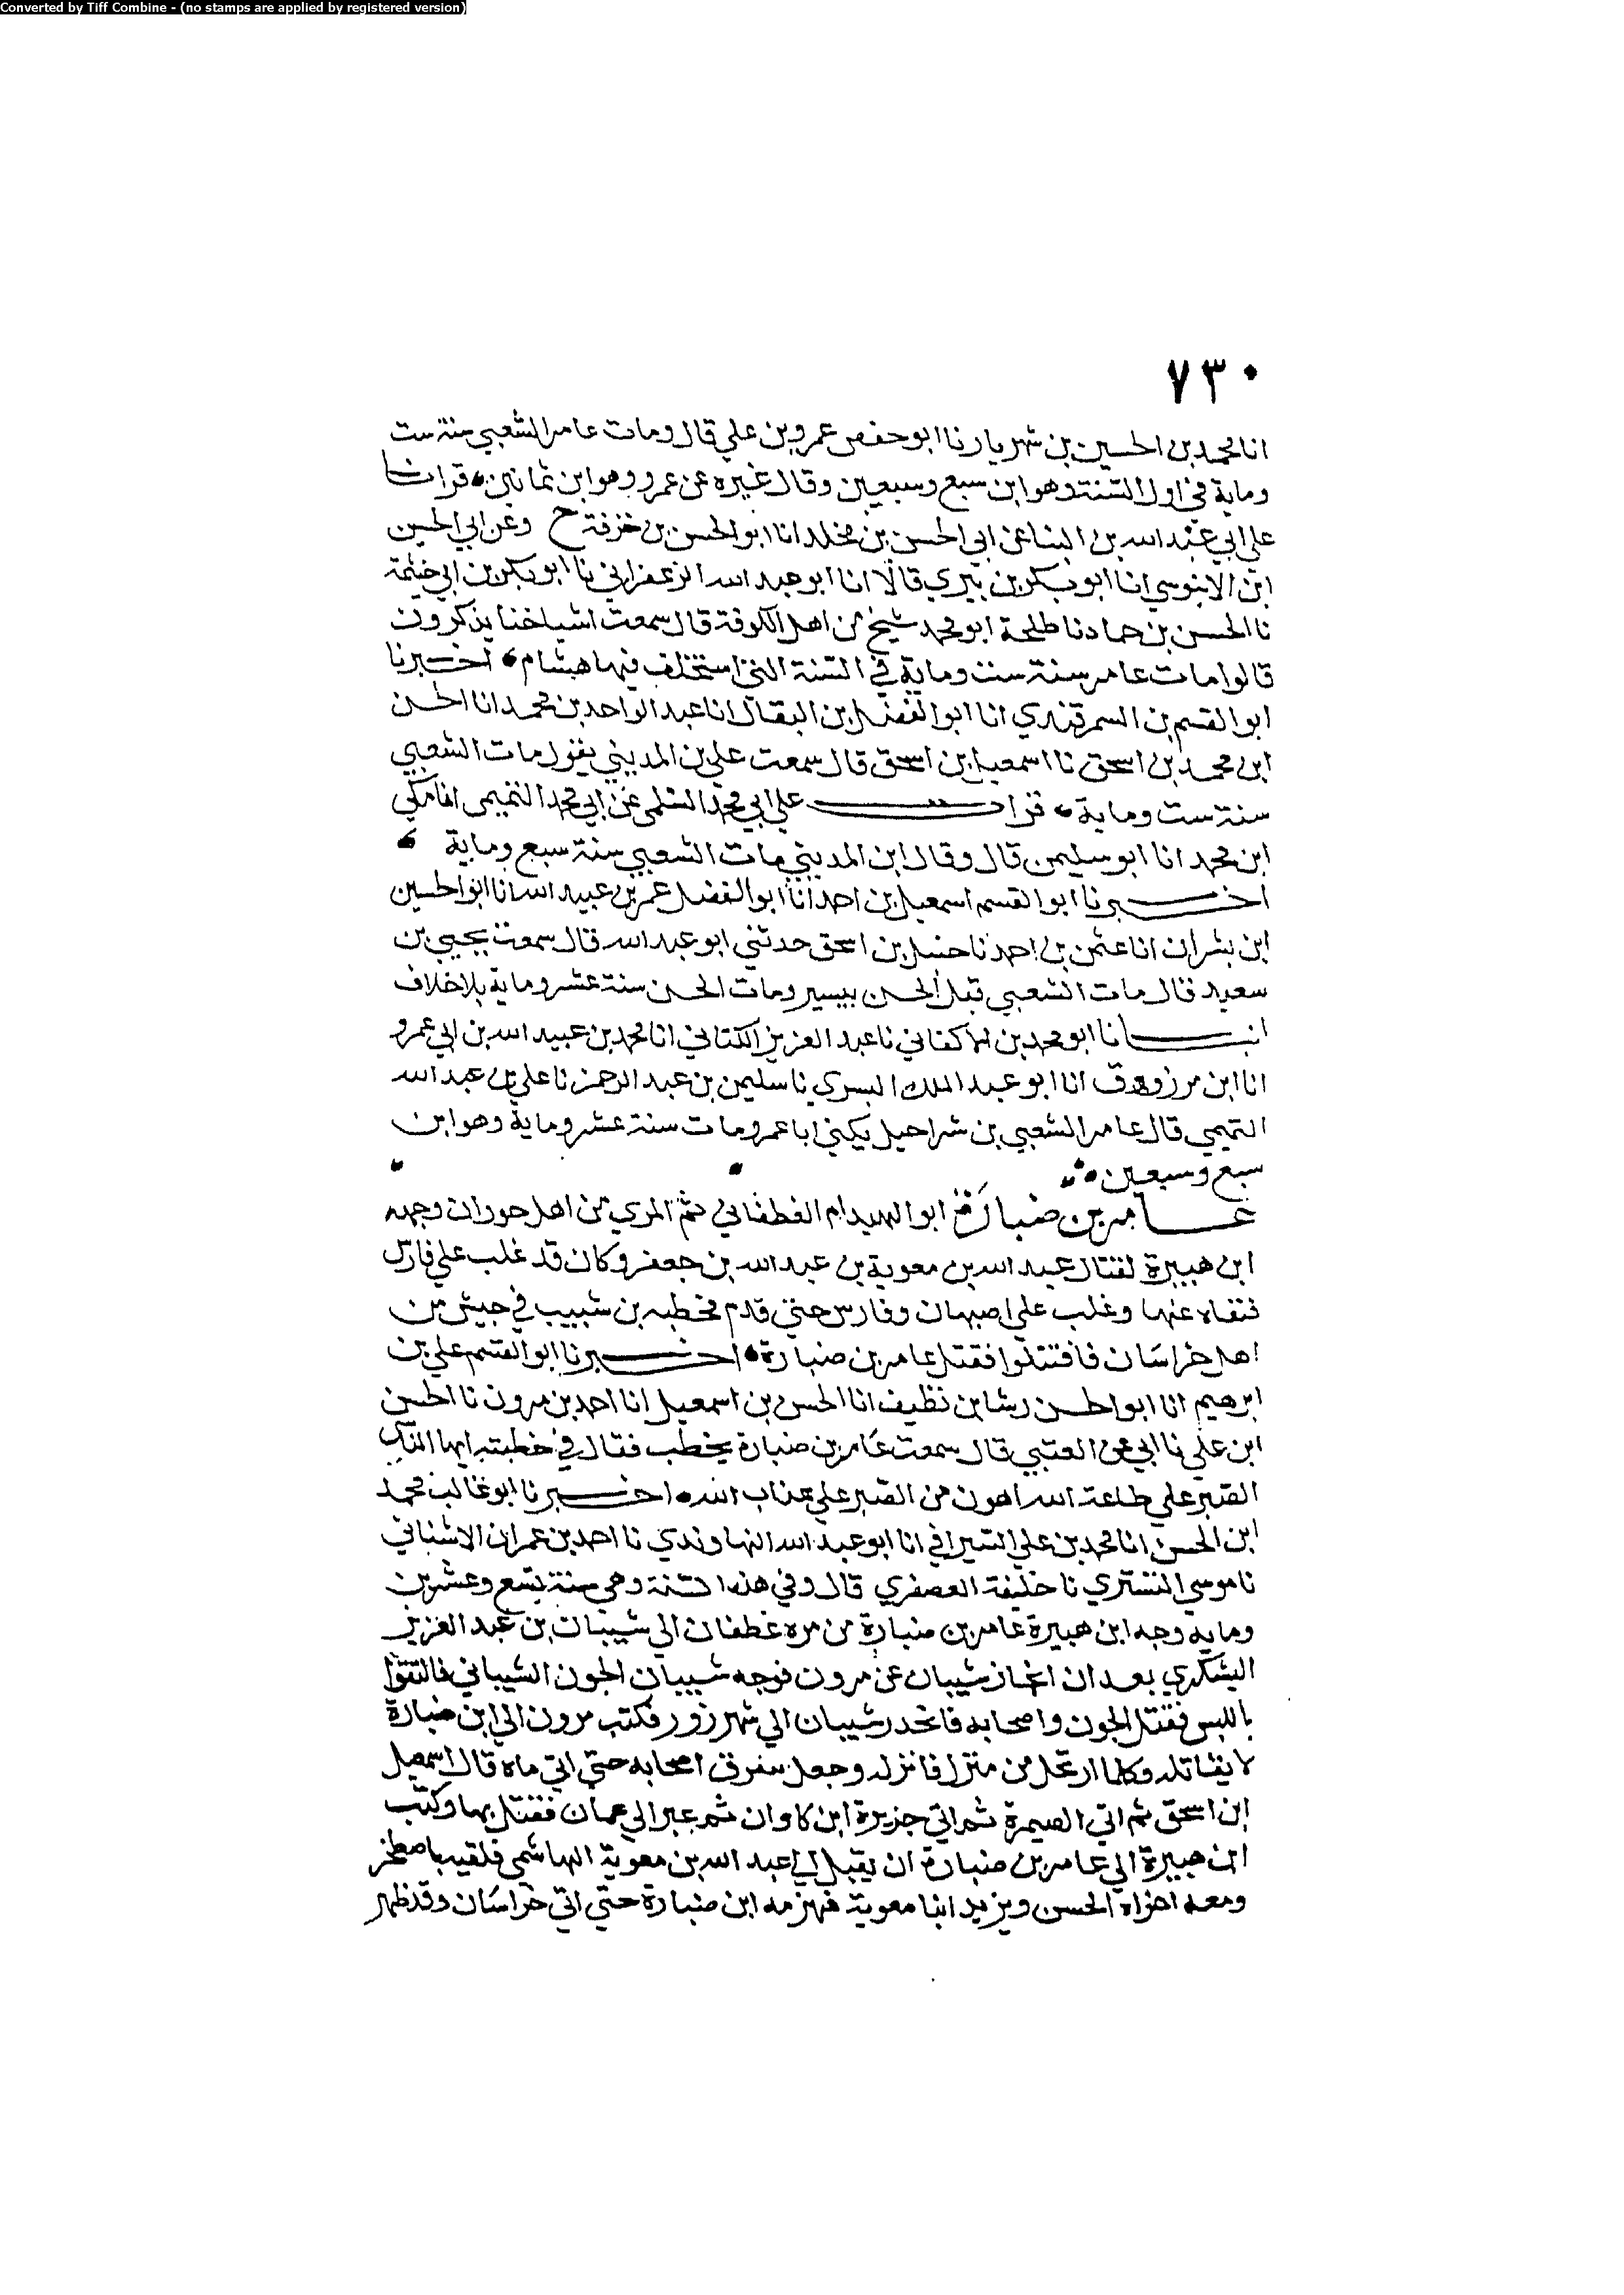 Converted by Tiff Combine - (no stamps are applied by registered version)
٧٣٠
انا محمد بن الحسين بن شهريار نا ابو حفص عمرو بن علي قال ومات عامر الشعبي سنة ست
وماية في اول السنة وهو ابن سبع وسبعين وقال غيره عن عمرو وهو ابن ثمانين قرات
علي ابي عبد الله بن البنا عن ابي الحسن بن مخلد انا ابو الحسن بن خزفة ح وعن ابي الحسين
ابن الابنوسي انا ابو بكر بن بيري قالا انا ابو عبد الله الزعفراني نا ابو بكر بن ابي خيثمة
نا الحسن بن حماد نا طلحة ابو محمد شيخ من اهل الكوفة قال سمعت اشياخنا يذكرون
قالوا مات عامر سنة ست وماية في السنة التي استخلف فيها هشام اخبرنا
ابو القسم بن السمرقندي انا ابو الفضل بن البقال انا عبد الواحد بن محمد انا الحسن
ابن محمد بن اسحق نا اسمعيل بن اسحق قال سمعت علي بن المديني يقول مات الشعبي
سنة ست وماية قرات علي ابي محمد السلمي عن ابي محمد التميمي انا مكي
ابن محمد انا ابو سليمن قال وقال ابن المديني مات الشعبي سنة سبع وماية
اخبرنا ابو القسم اسمعيل بن احمد انا ابو الفضل عمر بن عبيد الله انا ابو الحسين
ابن بشران انا عثمن بن احمد نا حنبل بن اسحق حدثني ابو عبد الله قال سمعت يحيي بن
سعيد قال مات الشعبي قبل الحسن بيسير ومات الحسن سنة عشر وماية بلا خلاف
انبانا ابو محمد بن الاكفاني نا عبد العزيز الكتاني انا محمد بن عبيد الله بن ابي عمرو
انا ابن مروان انا ابو عبد الملك البسري نا سليمن بن عبد الرحمن نا علي بن عبد الله
التميمي قال عامر الشعبي بن شراحيل يكني ابا عمرو مات سنة عشر وماية وهو ابن
سبع وسبعين
عامر بن ضبارة ابو الهيدام الغطفاني ثم المري من اهل حوران وجهه
ابن هبيرة لقتال عبد الله بن معوية بن عبد الله بن جعفر وكان قد غلب علي فارس
فنفاه عنها وغلب علي اصبهان وفارس حتي قدم قحطبه بن شبيب في جيش من
اهل خراسان فاقتتلوا فقتل عامر بن ضبارة اخبرنا ابو القسم علي بن
ابرهيم انا ابو الحسن رشا بن نظيف انا الحسن بن اسمعيل انا احمد بن مرون نا الحسن
ابن علي نا ابي عن العتبي قال سمعت عامر بن ضبارة يخطب فقال في خطبته ايها الناس
الصبر علي طاعة الله اهون من الصبر علي عذاب الله اخبرنا ابو غالب محمد
ابن الحسن انا محمد بن علي السيرافي انا ابو عبد الله النهاوندي نا احمد بن عمران الاشناني
نا موسي التستري نا خليفة العصفري قال وفي هذه السنة وهي سنة تسع وعشرين
وماية وجه ابن هبيرة عامر بن ضبارة من مره غطفان الي شيبان بن عبد العزيز
اليشكري بعد ان انحاز شيبان عن مرون فوجه شيبان الجون الشيباني فالتقوا
بالبس فقتل الجون واصحابه فانحدر شيبان الي شهرزور فكتب مرون الي ابن ضبارة
لا يقاتله وكلما ارتحل من منزل فانزله وجعل يتفرق اصحابه حتي اتي ماه قال اسمعيل
ابن اسحق ثم اتي الصيمرة ثم اتي جزيرة ابن كاوان ثم عبر الي عمان فقتل بها وكتب
ابن هبيرة الي عامر بن ضبارة ان يقبل الي عبد الله بن معوية الهاشمي فلقيه باصطخر
ومعه اخواه الحسن ويزيد ابنا معوية فهزمه ابن ضبارة حتي اتي خراسان وقد ظهر